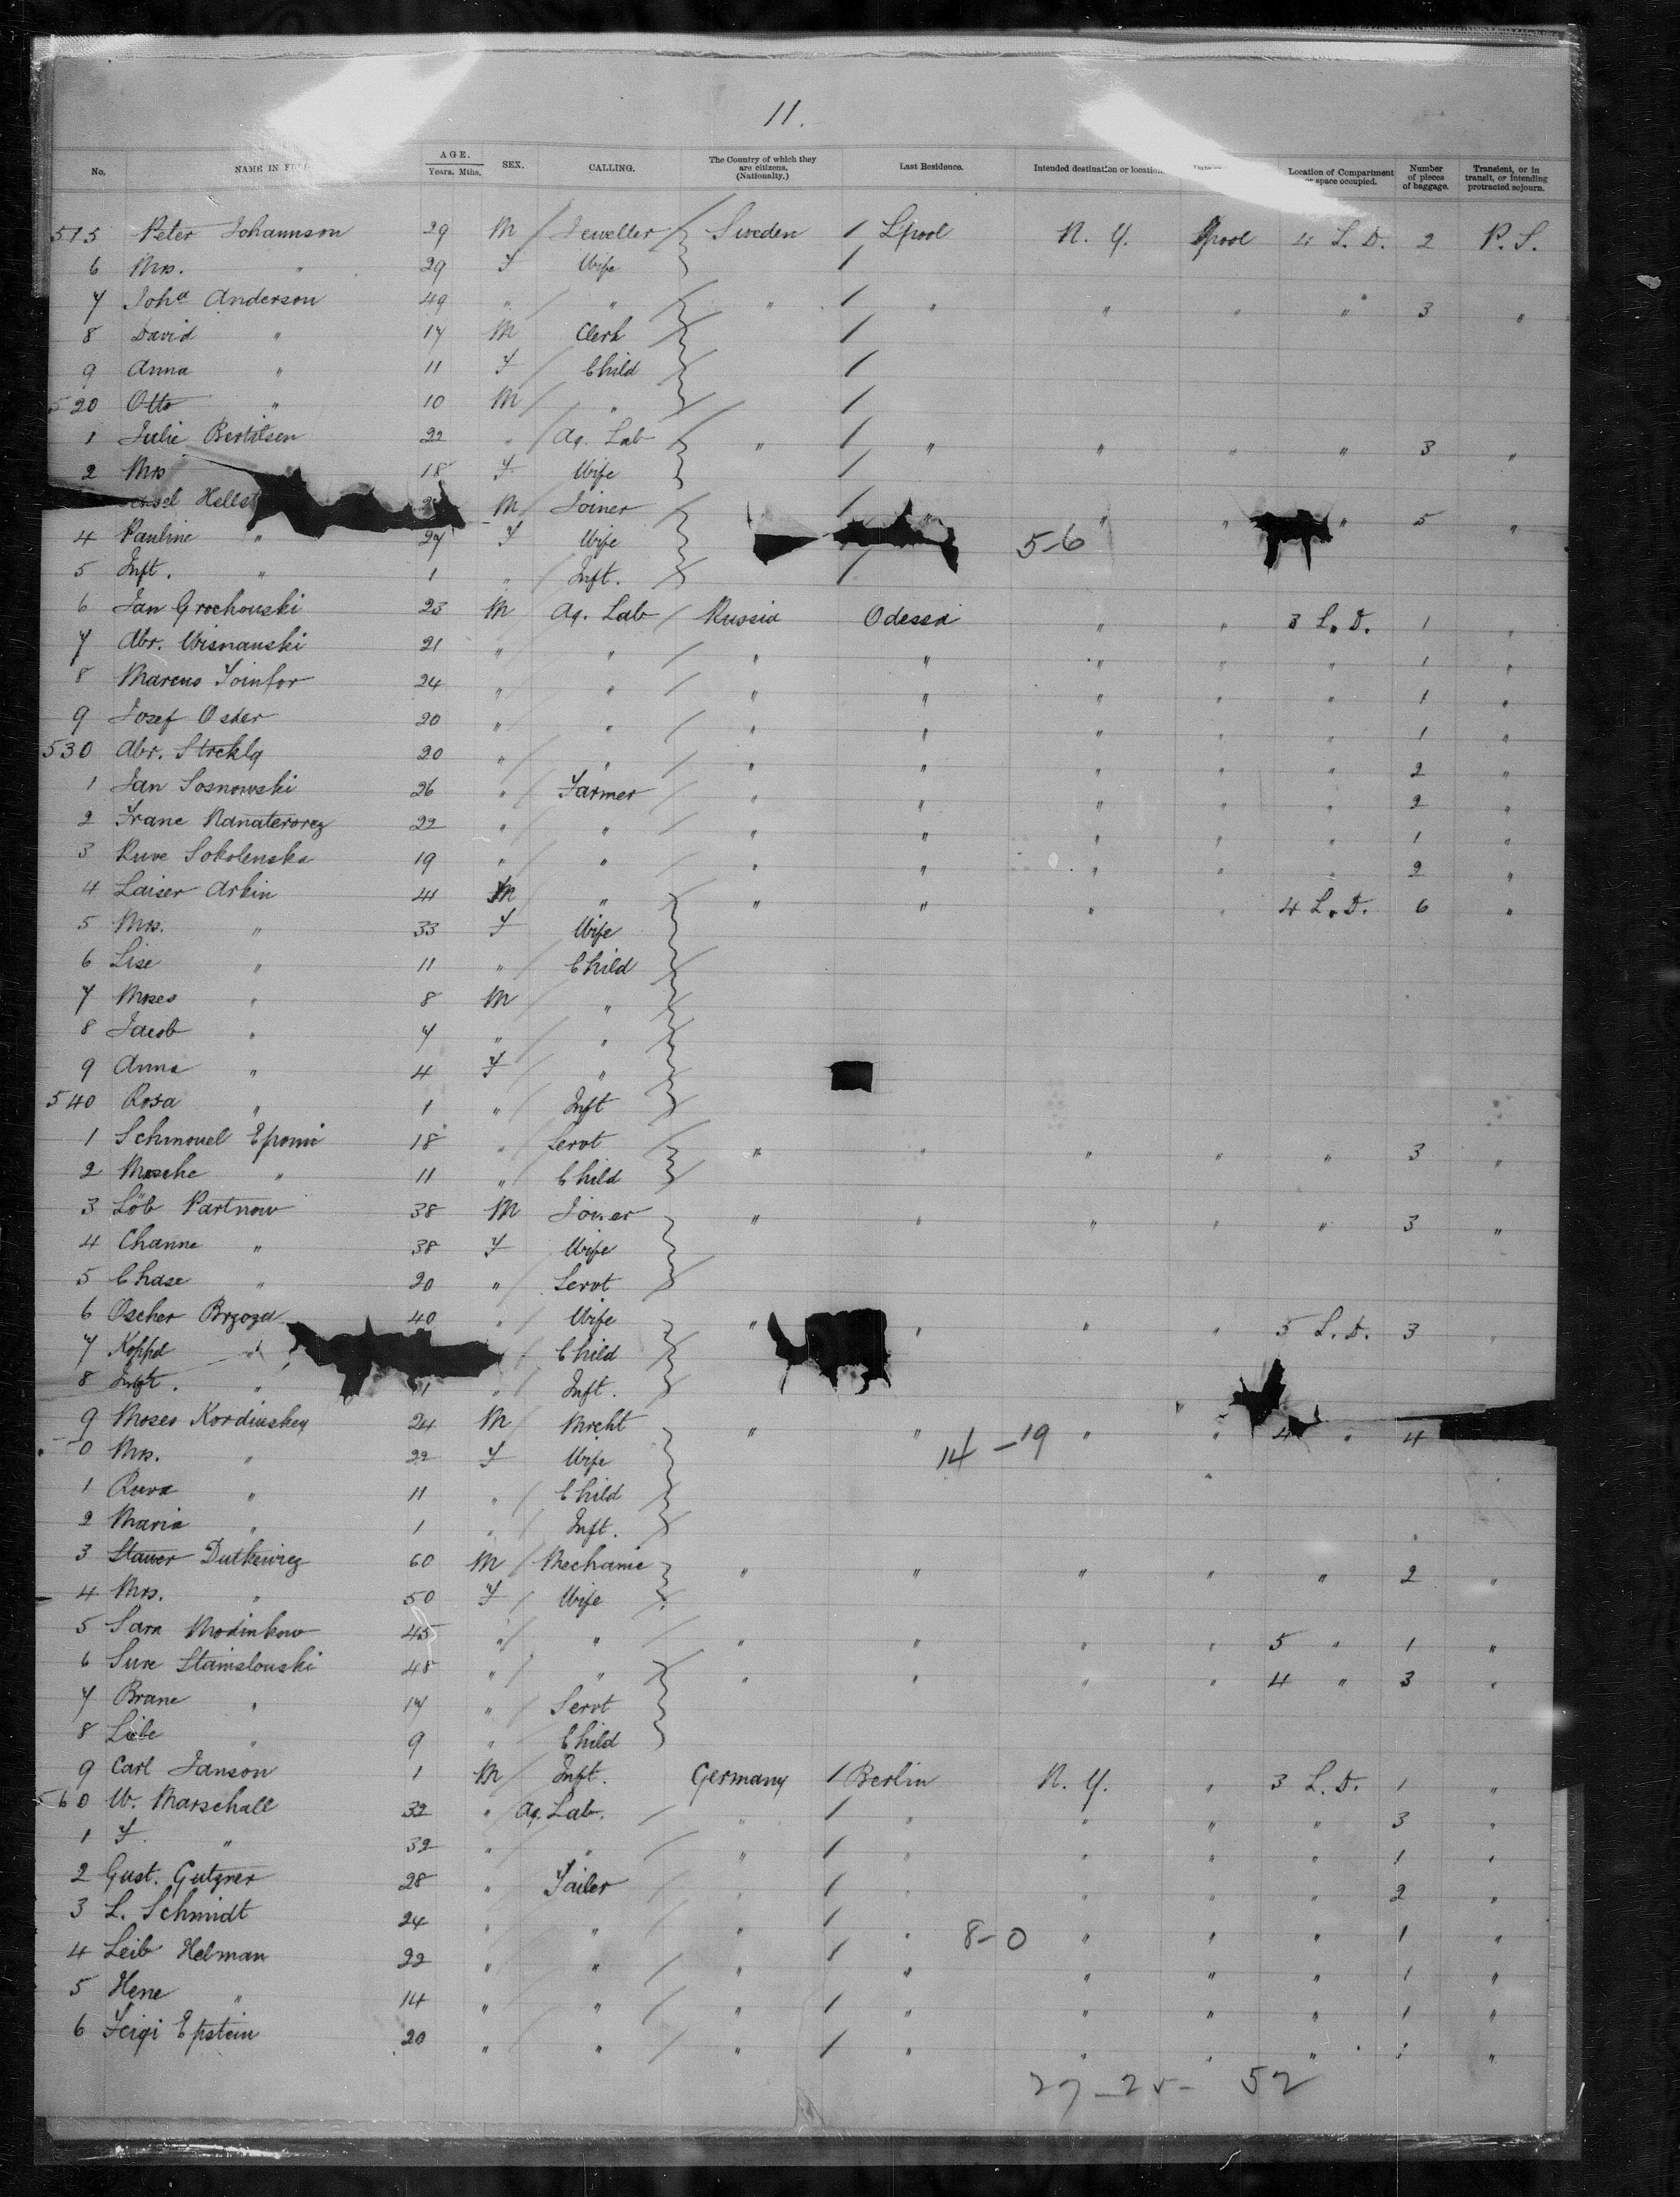 11.
No. NAME IN AGE. Years. Mths. SEX. CALLING. The Country of which they are citizens. (Nationalty.) Last Residence. Intended destination or location Location of Compartment or space occupied. Number of pieces of baggage. Transient, or in transit, or intending protracted sojourn.
515 Peter Johannson 29 M / Jeweller / Sweden / Lpool N. Y. Lpool 4 L. D. 2 P. S.
6 Mrs. " 29 F / Wife /
7 Joha Anderson 49 " / " / " / " " " " 3 "
8 David " 17 M / Clerk / /
9 Anna " 11 F / Child / /
520 Otto " 10 M / " / /
1 Julie Bertilsen 22 " / Ag. Lab / " / " " " " 3 "
2 Mrs 18 F / Wife /
Hellst M / Joiner / / " " " " 5 "
4 Pauline " 27 F / Wife 5-6
5 Inft. " 1 " / Inft. / /
6 Jan Grochouski 23 M / Ag. Lab / Russia Odessa " " 3 L. D. 1 "
7 Abr. Wisnauski 21 " / " / " " " " " 1 "
8 Marcus Joinfor 24 " / " / " " " " " 1 "
9 Josef Oster 20 " / " / " " " " " 1 "
530 Abr. 20 " / " / " " " " " 2 "
1 Jan Sosnowski 26 " / Farmer / " " " " " 2 "
2 Franc 22 " / " / " " " " " 1 "
3 Ruve Sokolenska 19 " / " / " " " " " 2 "
4 Laiser Arkin 44 M / " / " " " " 4 L. D. 6 "
5 Mrs. " 33 F / Wife
6 Lise " 11 " / Child /
7 Moses " 8 M / " /
8 Jacob " 7 " / " /
9 Anna " 4 F / " /
540 Rosa " 1 " / Inft /
1 Schmouel Epomi 18 " / Servt / " " " " " 3 "
2 Mosche " 11 " / Child /
3 Löb Partnow 38 M / Joiner " " " " " 3 "
4 Channe " 38 F / Wife
5 Chase " 20 " / Servt /
6 Oscher Brzoza 40 " / Wife " " " " 5 L. D. 3 "
7 Koppel " / Child /
8 Inft. " 1 " / Inft. /
9 Moses Kordinskey 24 M / Mrcht " " " " 4 " 4
0 Mrs. " 22 F / Wife 14 - 19
1 Ruva " 11 " / Child /
2 Maria " 1 " / Inft. /
3 Dutkewicz 60 M / Mechanic " " " " " 2 "
4 Mrs. " 50 F / Wife /
5 Sara Modinkow 45 " / " / " " " " 5 " 1 "
6 Sure Stamslouski 48 " / " / " " " " 4 " 3 "
7 Brane " 17 " / Servt
8 Liebe " 9 " / Child
9 Carl Janson 1 M / Inft. Germany / Berlin N. Y. " 3 L. D. 1 "
60 W. Marschall 32 " Ag. Lab. / " / " " " " 3 "
1 F. " 32 " / " / " / " " " " 1 "
2 Gust. Gutzner 28 " Tailor / " / " " " " 2 "
3 L. Schmidt 24 " " " / " " " " 1 "
8-0
4 Leib Helman 22 " " / " / " " " " 1 "
5 Hene " 14 " " / " / " " " " 1 "
6 Feigi Epstein 20 " " / " / " " " " "
27 - 25 - 52